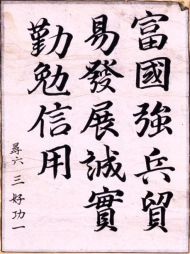 富國強兵貿
易發展誠實
勤勉信用
尋六 三好功一